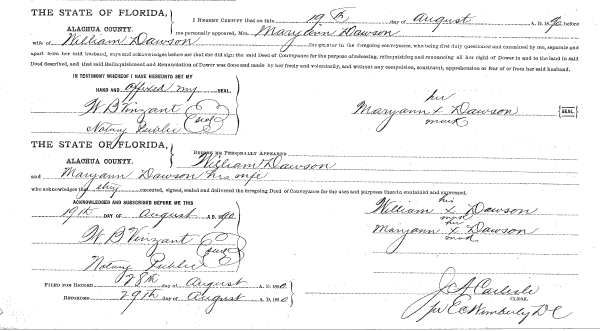 THE STATE OF FLORIDA,
ALACHUA COUNTY.
I HEREBY CERTIFY that on this 19th day of August A. D. 1890 before
me personally appeared, Mrs. Maryann Dawson
wife of William Dawson the grantor in the foregoing conveyance, who being first duly questioned and examined by me, separate and
apart from her said husband, says and acknowledges before me that she did sign the said Deed of Conveyance for the purpose of releasing, relinquishing and renouncing all her right of Dower in and to the land in said
Deed described, and that said Relinquishment and Renunciation of Dower was done and made by her freely and voluntarily, and without any compulsion, constraint, apprehension or fear of or from her said husband.
IN TESTIMONY WHEREOF I HAVE HEREUNTO SET MY
HAND AND affixed my SEAL.
W B Vinzant Seal
Notary Public
her
Maryann x Dawson SEAL
mark
THE STATE OF FLORIDA,
ALACHUA COUNTY.
BEFORE ME PERSONALLY APPEARED
William Dawson
and Maryann Dawson his wife
who acknowledged that they executed, signed, sealed and delivered the foregoing Deed of Conveyance for the uses and purposes therein contained and expressed.
ACKNOWLEDGED AND SUBSCRIBED BEFORE ME THIS
19th DAY OF August A. D. 1890
W B Vinzant Seal
Notary Public
his
William x Dawson
mark
her
Maryann x Dawson
mark
FILED FOR RECORD 28th day of August A. D. 1890.
RECORDED 29th day of August A. D. 1890
J A Carlisle
CLERK.
per E C Wimberly D C